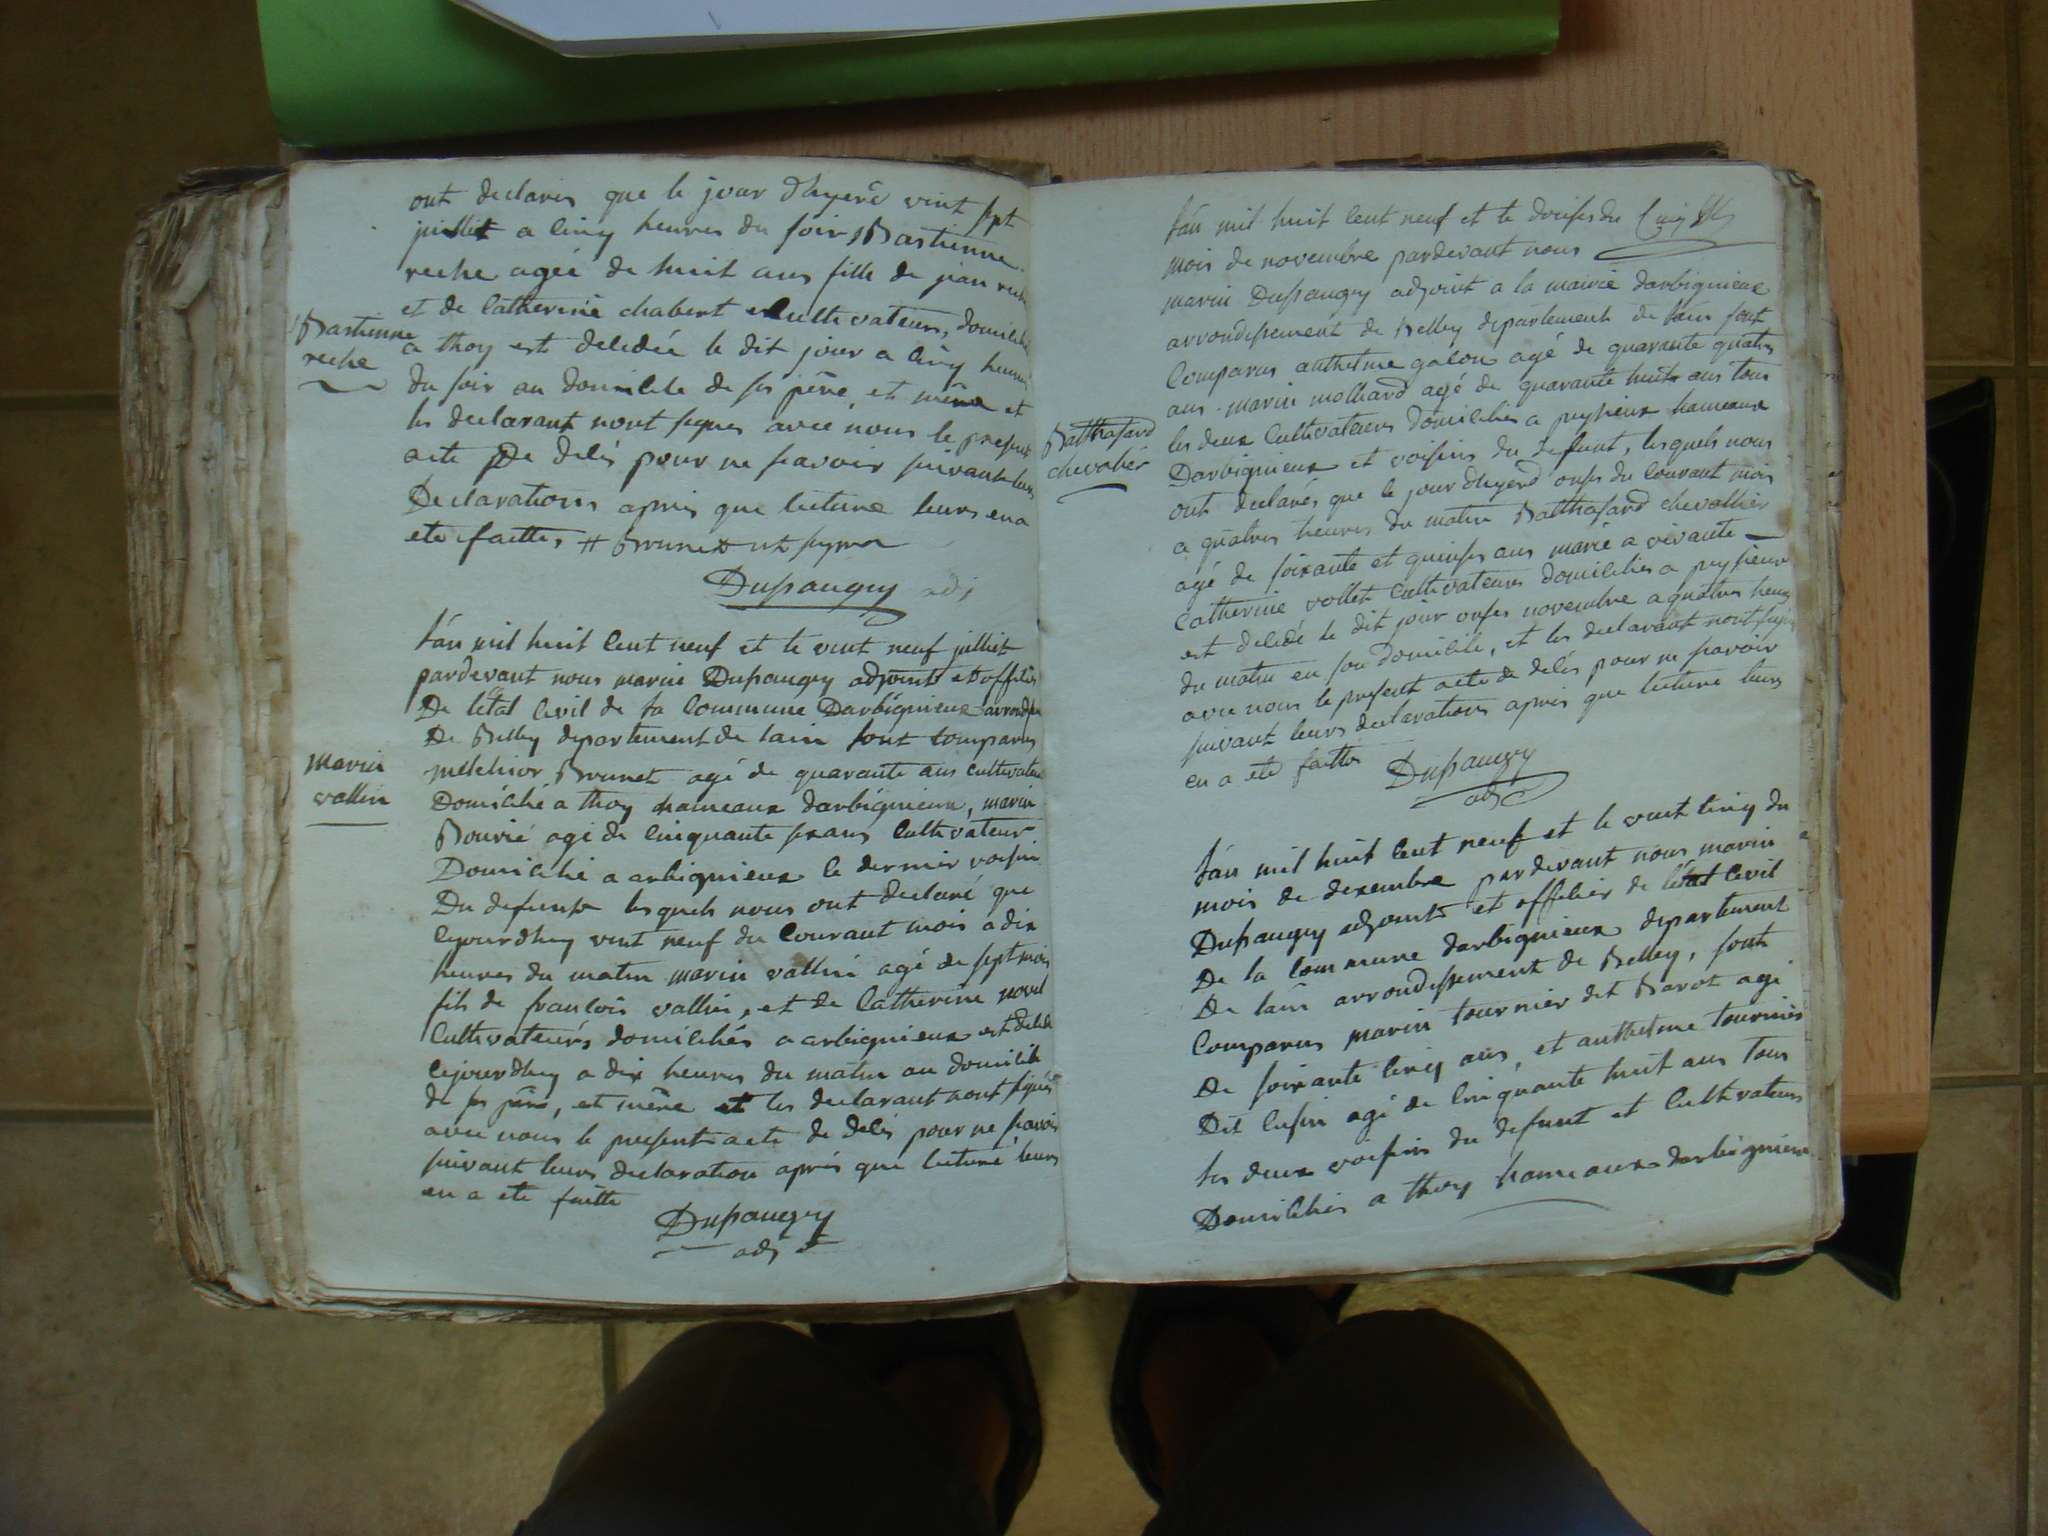 ont declarés que le jour dhyere vint sept
juillet a cinq heures du soir Bastienne
reche agée de huit ans fille de jean reche
et de Catherine chabert Cultivateurs, domicilié
Bastienne
reche
a thoy est decedée le dit jour a cinq heures
du soir au domicile de ses père et mère et
les declarant nont signés avec nous le present
acte De decés pour ne scavoir suivant leurs
Declarations aprés que lecture leurs en a
ete faittes # Brunet
Dupaugey adj
L'an mil huit Cent neuf et le vint neuf julliet
pardevant nous marin Dupaugey adjoint et officier
De létat Civil de la Commune Darbignieux arrondse
De Belley departement de lain sont Comparus
marin
vallin
melchior Brunet agé de quarante ans cultivateur
Domicilié a thoy hameaux darbignieux, marin
Bouvié agé de Cinquante six ans Cultivateur
Domicilié a arbignieux le dernier voisin
Du defunt lesquels nous ont declaré que
Cejourdhuy vint neuf du Courant mois a dix
heures du matin marin vallin agé de sept mois
fils de francois vallin, et de Catherine novel
Cultivateurs domiciliés a arbignieux est decedé
Cejourdhuy a dix heures du matin au domicile
de ses père, et mère et les declarant nont signés
avec nous le present acte de decés pour ne scavoir
suivant leurs declaration aprés que lecture leurs
en a ete faitte
Dupaugey
adj
L'an mil huit Cent neuf et le douses du
mois de novembre pardevant nous
marin Dupaugey adjoint a la mairie darbignieux
arrondissement de Belley departement de lain sont
Comparus anthelme galon agé de quarante quatres
ans marin molliard agé de quarante huit ans tous
Balthasard
chevalier
les deux Cultivateurs domiciliés a peysieux hameaux
Darbignieux et voisins du defunt, lesquels nous
ont declarés que le jour dhyerd onses du Courant mois
a quatres heures du matin Balthasard chevallier
agé de soixante et quinses ans marié a vivante
Catherine vollet Cultivateurs domiciliés a peysieux
est decedé le dit jour onses novembre a quatres heures
du matin en son domicile, et les declarant nont signés
avec nous le present acte de decés pour ne scavoir
suivant leurs declarations aprés que lecture leurs
en a ete faitte
Dupaugey
adj
L'an mil huit Cent neuf et le vint Cinq du
mois de dexembre pardevant nous marin
Dupaugey adjoint et officier de létat Civil
De la Commune darbignieux departement
De lain arrondissement de Belley, sont
Comparus marin tournier dit Barot agé
De soixante Cinq ans, et anthelme tournier
Dit Cusin agé de Cinquante huit ans tous
les deux voisins du defunt et Cultivateurs
Domiciliés a thoy hameaux darbignieux